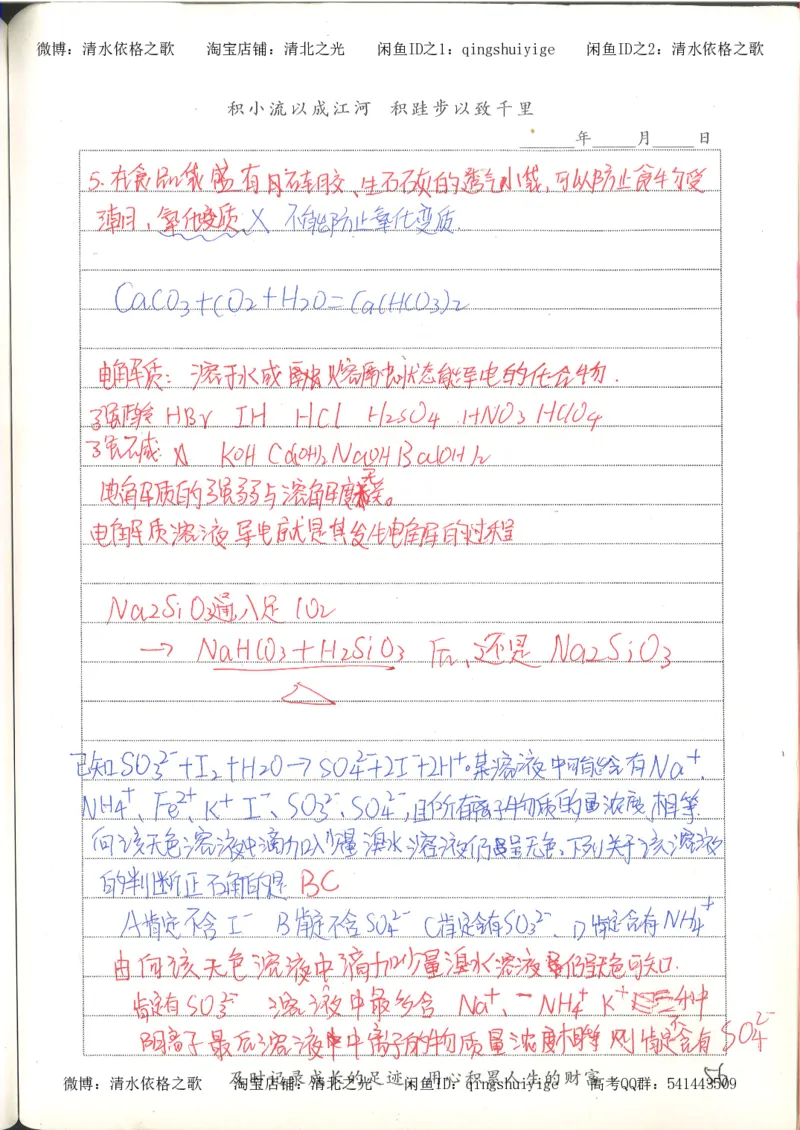 微博：清水依格之歌 淘宝店铺：清北之光 闲鱼ID之1：qingshuiyige 闲鱼ID之2：清水依格之歌
积小流以成江河 积跬步以致千里
年 月 日
5.在食品袋盛有月硅胶、生石灰的透气小袋,可以防止食物受
潮、氧化变质 X 不能防止氧化变质.
CaCO3+CO2+H2O=Ca(HCO3)2
电解质：溶于水或熔融状态能导电的化合物.
强酸 HBr IH HCl H2SO4 HNO3 HClO4
强碱: KOH Ca(OH)2 NaOH Ba(OH)2
电解质的强弱与溶解度无关。
电解质溶液导电就是其发生电解的过程
Na2SiO3通入足CO2
→ NaHCO3+H2SiO3 后,还是 Na2SiO3
已知SO3²⁻+I2+H2O→SO4²⁻+2I⁻+2H⁺。某溶液中可能含有Na⁺、
NH4⁺、Fe²⁺、K⁺ I⁻、SO3²⁻、SO4²⁻,且所有离子物质的量浓度相等
向该无色溶液中滴加入少量溴水溶液仍呈无色,下列关于该溶液
的判断正确的是 BC
A肯定不含I⁻ B肯定不含SO4²⁻ C肯定含有SO3²⁻、D肯定含有NH4⁺
由向该无色溶液中滴加少量溴水溶液仍呈无色可知.
肯定有SO3²⁻ 溶液中最多含 Na⁺、NH4⁺ K⁺三种
阳离子最后溶液中离子的物质量浓度相等 则肯定不含有SO4²⁻
及时记录成长的足迹 用心积累人生的财富
56
微博：清水依格之歌 淘宝店铺：清北之光 闲鱼ID：qingshuiyige 高考QQ群：541443509